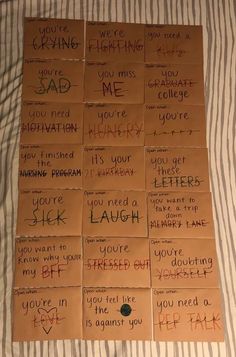 Open when...
you're
CRYING
Open when...
we're
FIGHTING
Open when...
you need a
Open when...
you're
SAD
Open when...
you miss
ME
Open when...
you
GRADUATE
college
Open when...
you need
MOTIVATION
Open when...
you're
HUNGRY
Open when...
you're
Open when...
you finished
the
NURSING PROGRAM
Open when...
it's your
BIRTHDAY
Open when...
you get
these
LETTERS
Open when...
you're
SICK
Open when...
you need a
LAUGH
Open when...
you want to
take a trip
down
MEMORY LANE
Open when...
you want to
know why you're
my BFF
Open when...
you're
STRESSED OUT
Open when...
you're
doubting
YOURSELF
Open when...
you're in
LOVE
Open when...
you feel like
the
is against you
Open when...
you need a
PEP TALK